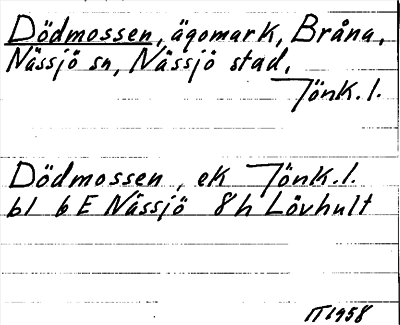 Dödmossen, ägomark, Bråna,
Nässjö sn, Nässjö stad,
Jönk. l.
Dödmossen, ek Jönk. l.
bl 6E Nässjö 8h Lövhult
IT 1958